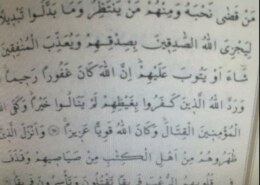 مَّن قَضَىٰ نَحْبَهُ وَمِنْهُم مَّن يَنتَظِرُ وَمَا بَدَّلُوا تَبْدِيلًا
لِّيَجْزِيَ اللَّهُ الصَّادِقِينَ بِصِدْقِهِمْ وَيُعَذِّبَ الْمُنَافِقِينَ
شَاءَ أَوْ يَتُوبَ عَلَيْهِمْ إِنَّ اللَّهَ كَانَ غَفُورًا رَّحِيمًا
وَرَدَّ اللَّهُ الَّذِينَ كَفَرُوا بِغَيْظِهِمْ لَمْ يَنَالُوا خَيْرًا وَكَفَى
الْمُؤْمِنِينَ الْقِتَالَ وَكَانَ اللَّهُ قَوِيًّا عَزِيزًا وَأَنزَلَ الَّذِينَ
ظَاهَرُوهُم مِّنْ أَهْلِ الْكِتَابِ مِن صَيَاصِيهِمْ وَقَذَفَ